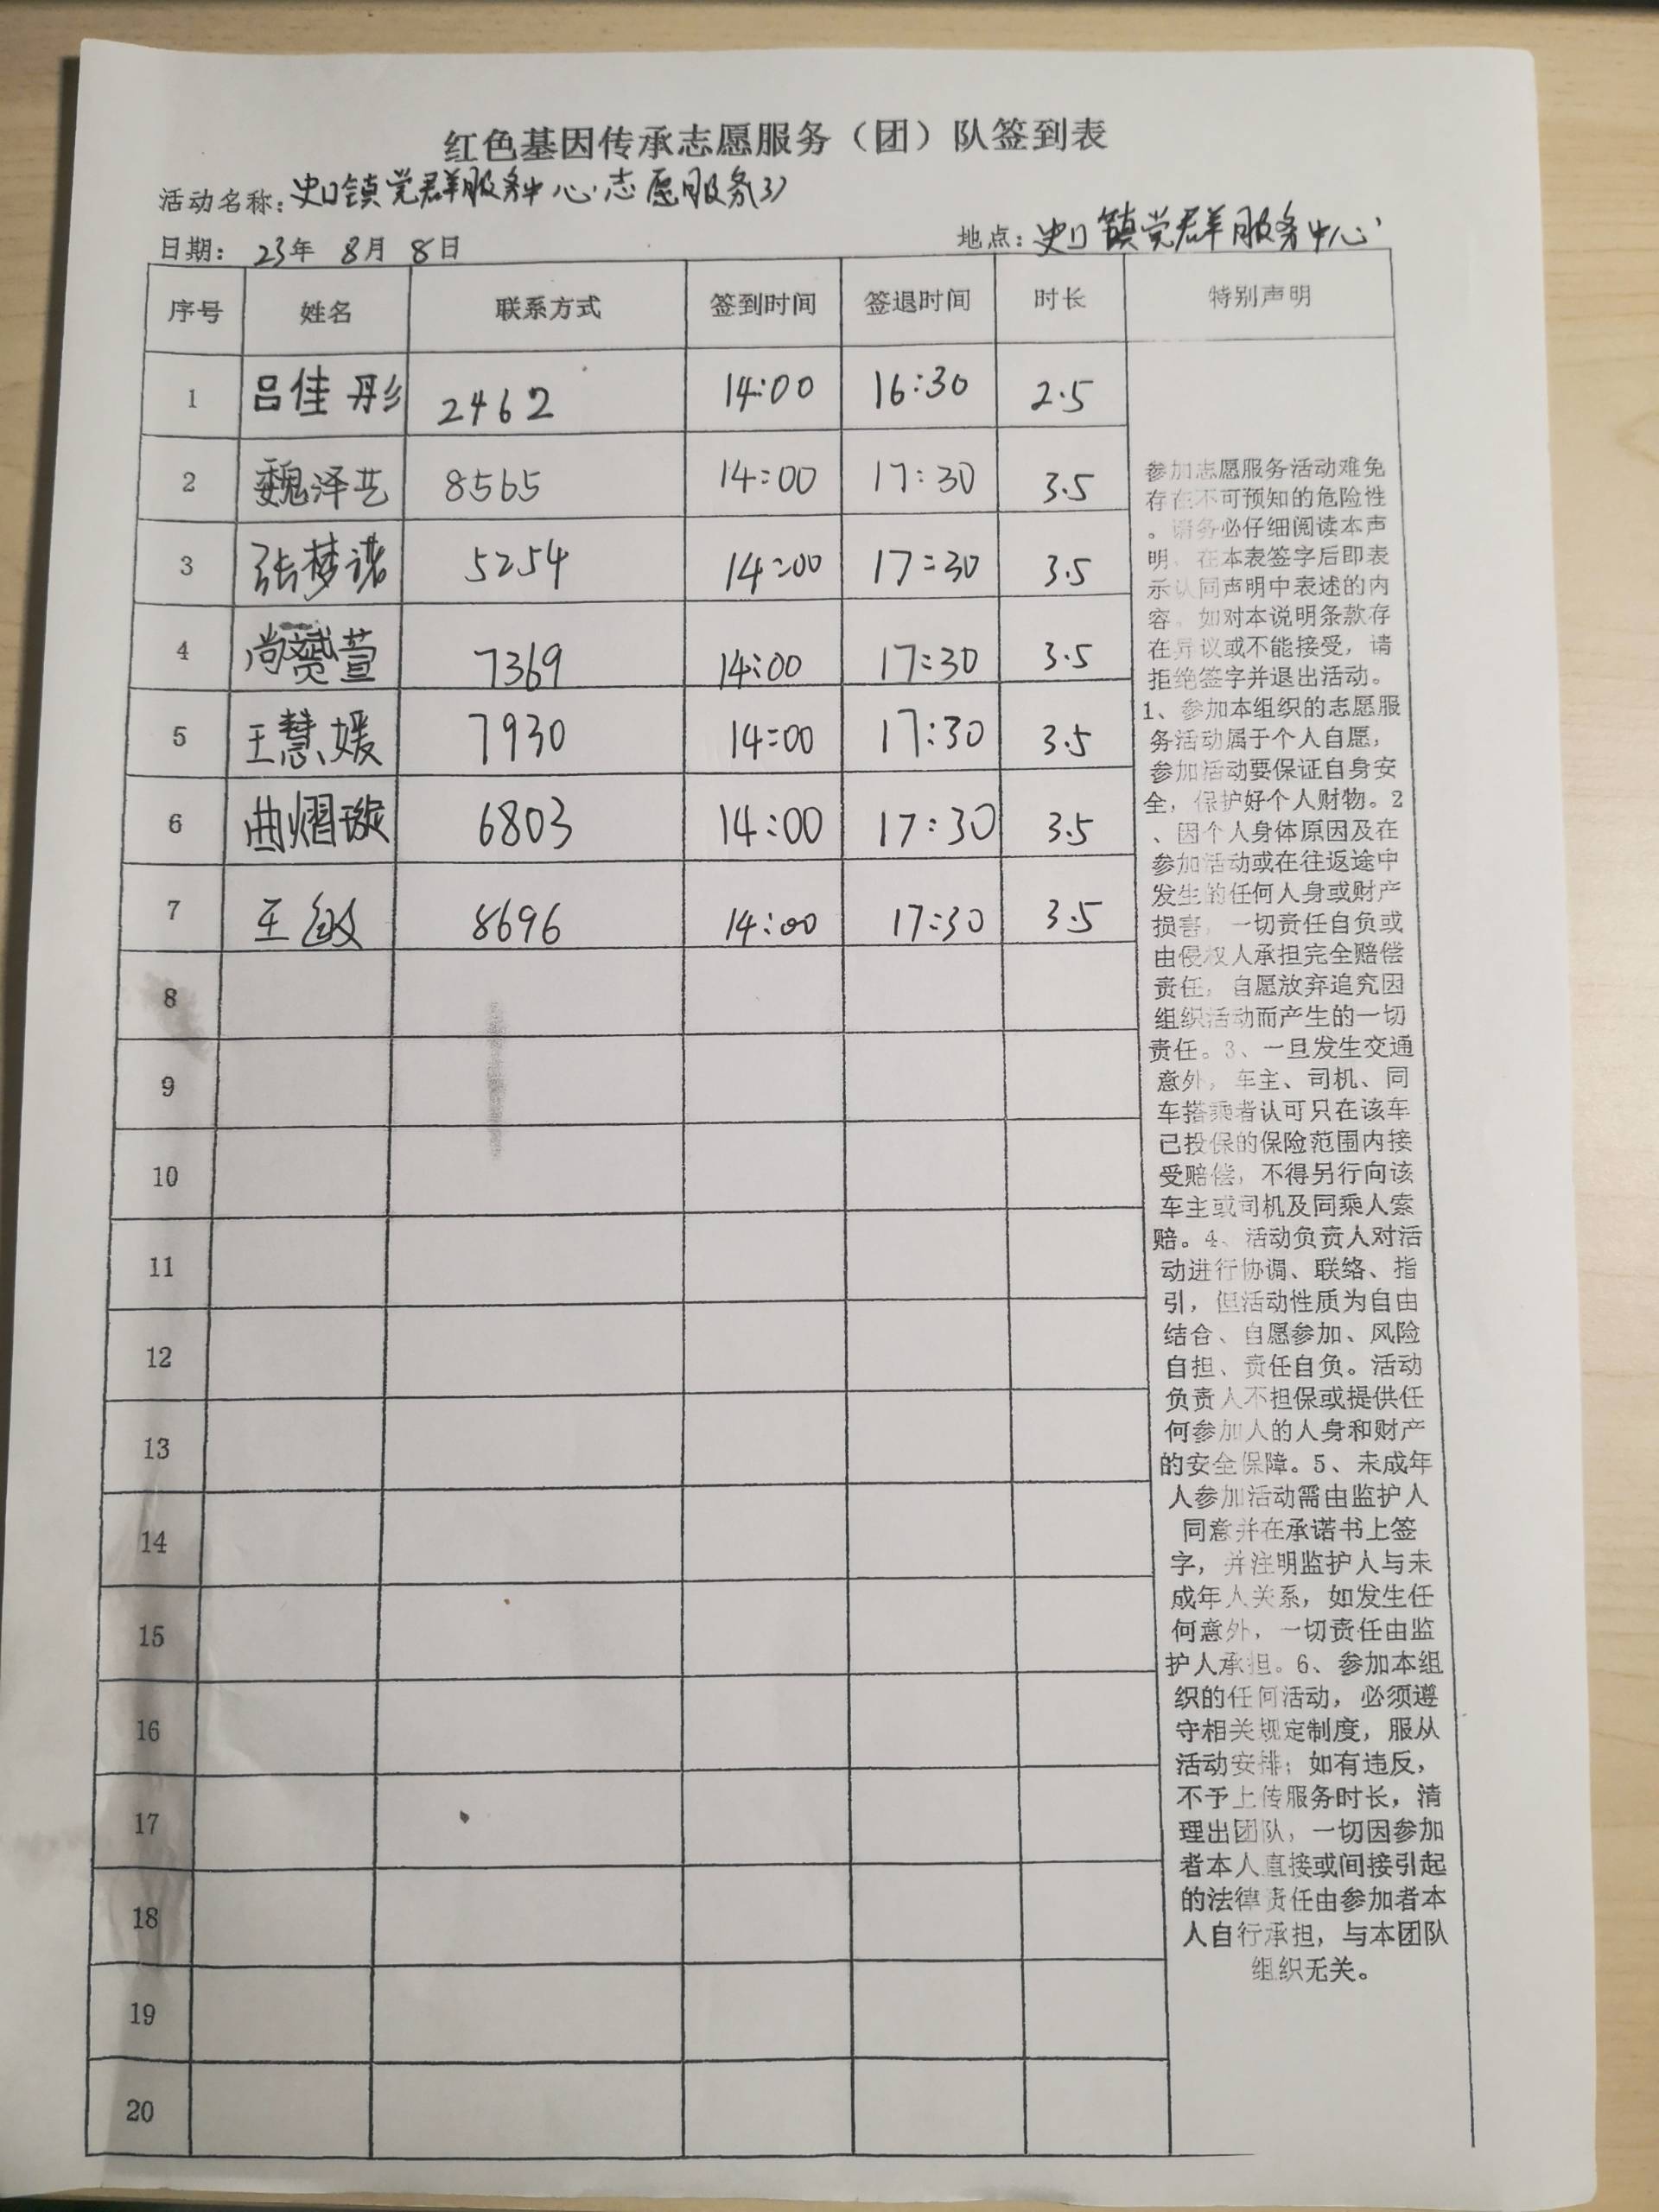 红色基因传承志愿服务（团）队签到表
活动名称：史口镇党群服务中心志愿服务(3)
日期： 23年 8月 8日 地点：史口镇党群服务中心
序号 姓名 联系方式 签到时间 签退时间 时长 特别声明
1 吕佳彤 2462 14:00 16:30 2.5
2 魏泽艺 8565 14:00 17:30 3.5
3 张梦诺 5254 14:00 17:30 3.5
4 尚赟萱 7369 14:00 17:30 3.5
5 王慧媛 7930 14:00 17:30 3.5
6 曲熠璇 6803 14:00 17:30 3.5
7 王敏 8696 14:00 17:30 3.5
8
9
10
11
12
13
14
15
16
17
18
19
20
参加志愿服务活动难免
存在不可预知的危险性
。请务必仔细阅读本声
明，在本表签字后即表
示认同声明中表述的内
容。如对本说明条款存
在异议或不能接受，请
拒绝签字并退出活动。
1、参加本组织的志愿服
务活动属于个人自愿，
参加活动要保证自身安
全，保护好个人财物。2
、因个人身体原因及在
参加活动或在往返途中
发生的任何人身或财产
损害，一切责任自负或
由侵权人承担完全赔偿
责任，自愿放弃追究因
组织活动而产生的一切
责任。3、一旦发生交通
意外，车主、司机、同
车搭乘者认可只在该车
已投保的保险范围内接
受赔偿，不得另行向该
车主或司机及同乘人索
赔。4、活动负责人对活
动进行协调、联络、指
引，但活动性质为自由
结合、自愿参加、风险
自担、责任自负。活动
负责人不担保或提供任
何参加人的人身和财产
的安全保障。5、未成年
人参加活动需由监护人
同意并在承诺书上签
字，并注明监护人与未
成年人关系，如发生任
何意外，一切责任由监
护人承担。6、参加本组
织的任何活动，必须遵
守相关规定制度，服从
活动安排；如有违反，
不予上传服务时长，清
理出团队，一切因参加
者本人直接或间接引起
的法律责任由参加者本
人自行承担，与本团队
组织无关。